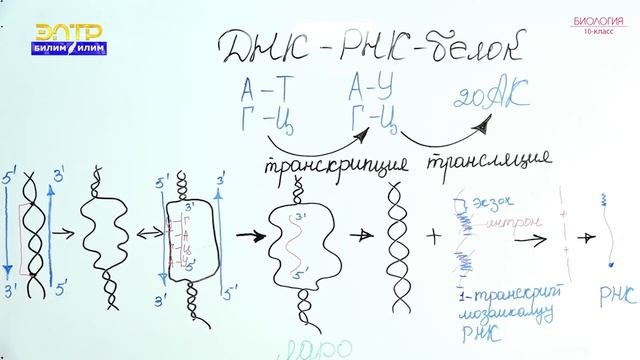 ЭЛТР
БИЛИМ ИЛИМ
БИОЛОГИЯ
10-класс
ДНК-РНК-белок
А-Т А-У 20АК
Г-Ц Г-Ц
транскрипция трансляция
5' 3' 5' 3' 3' экзон
интрон
Г
А
Ц
У
5' 5'
3' 5' 3' 5'
1-транскрипт
мозаикалуу
РНК
РНК
ядро